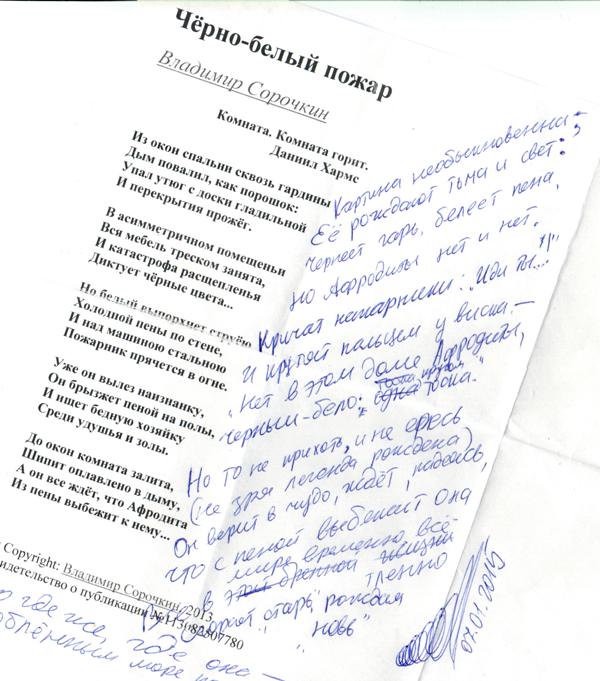 Чёрно-белый пожар
Владимир Сорочкин
Комната. Комната горит.
Даниил Хармс
Из окон спальни сквозь гардины
Дым повалил, как порошок:
Упал утюг с доски гладильной
И перекрытия прожёг.
В асимметричном помещеньи
Вся мебель треском занята,
И катастрофа расщепленья
Диктует чёрные цвета...
Но белый выпорхнет струёю
Холодной пены по стене,
И над машиною стальною
Пожарник прячется в огне.
Уже он вылез наизнанку,
Он брызжет пеной на полы,
И ищет бедную хозяйку
Среди удушья и золы.
До окон комната залита,
Шипит оплавлено в дыму,
А он все ждёт, что Афродита
Из пены выбежит к нему...
Copyright: Владимир Сорочкин, 2013
идетельство о публикации №113082807780
Картина необыкновенна –
Её рождают тьма и свет:
Чернеет гарь, белеет пена,
Но Афродиты нет и нет.
Кричат напарники: "Иди ты..."
И крутят пальцем у виска. –
"Нет в этом доме Афродиты,
Черным-бело:
Но то не прихоть, и не ересь
(не зря легенда рождена)
Он верит в чудо, ждёт, надеясь,
что с пеной выбежит она
в мире временно всё
тленно
"старь", рождая
"новь"
07.01.2015
где же, где она –
море